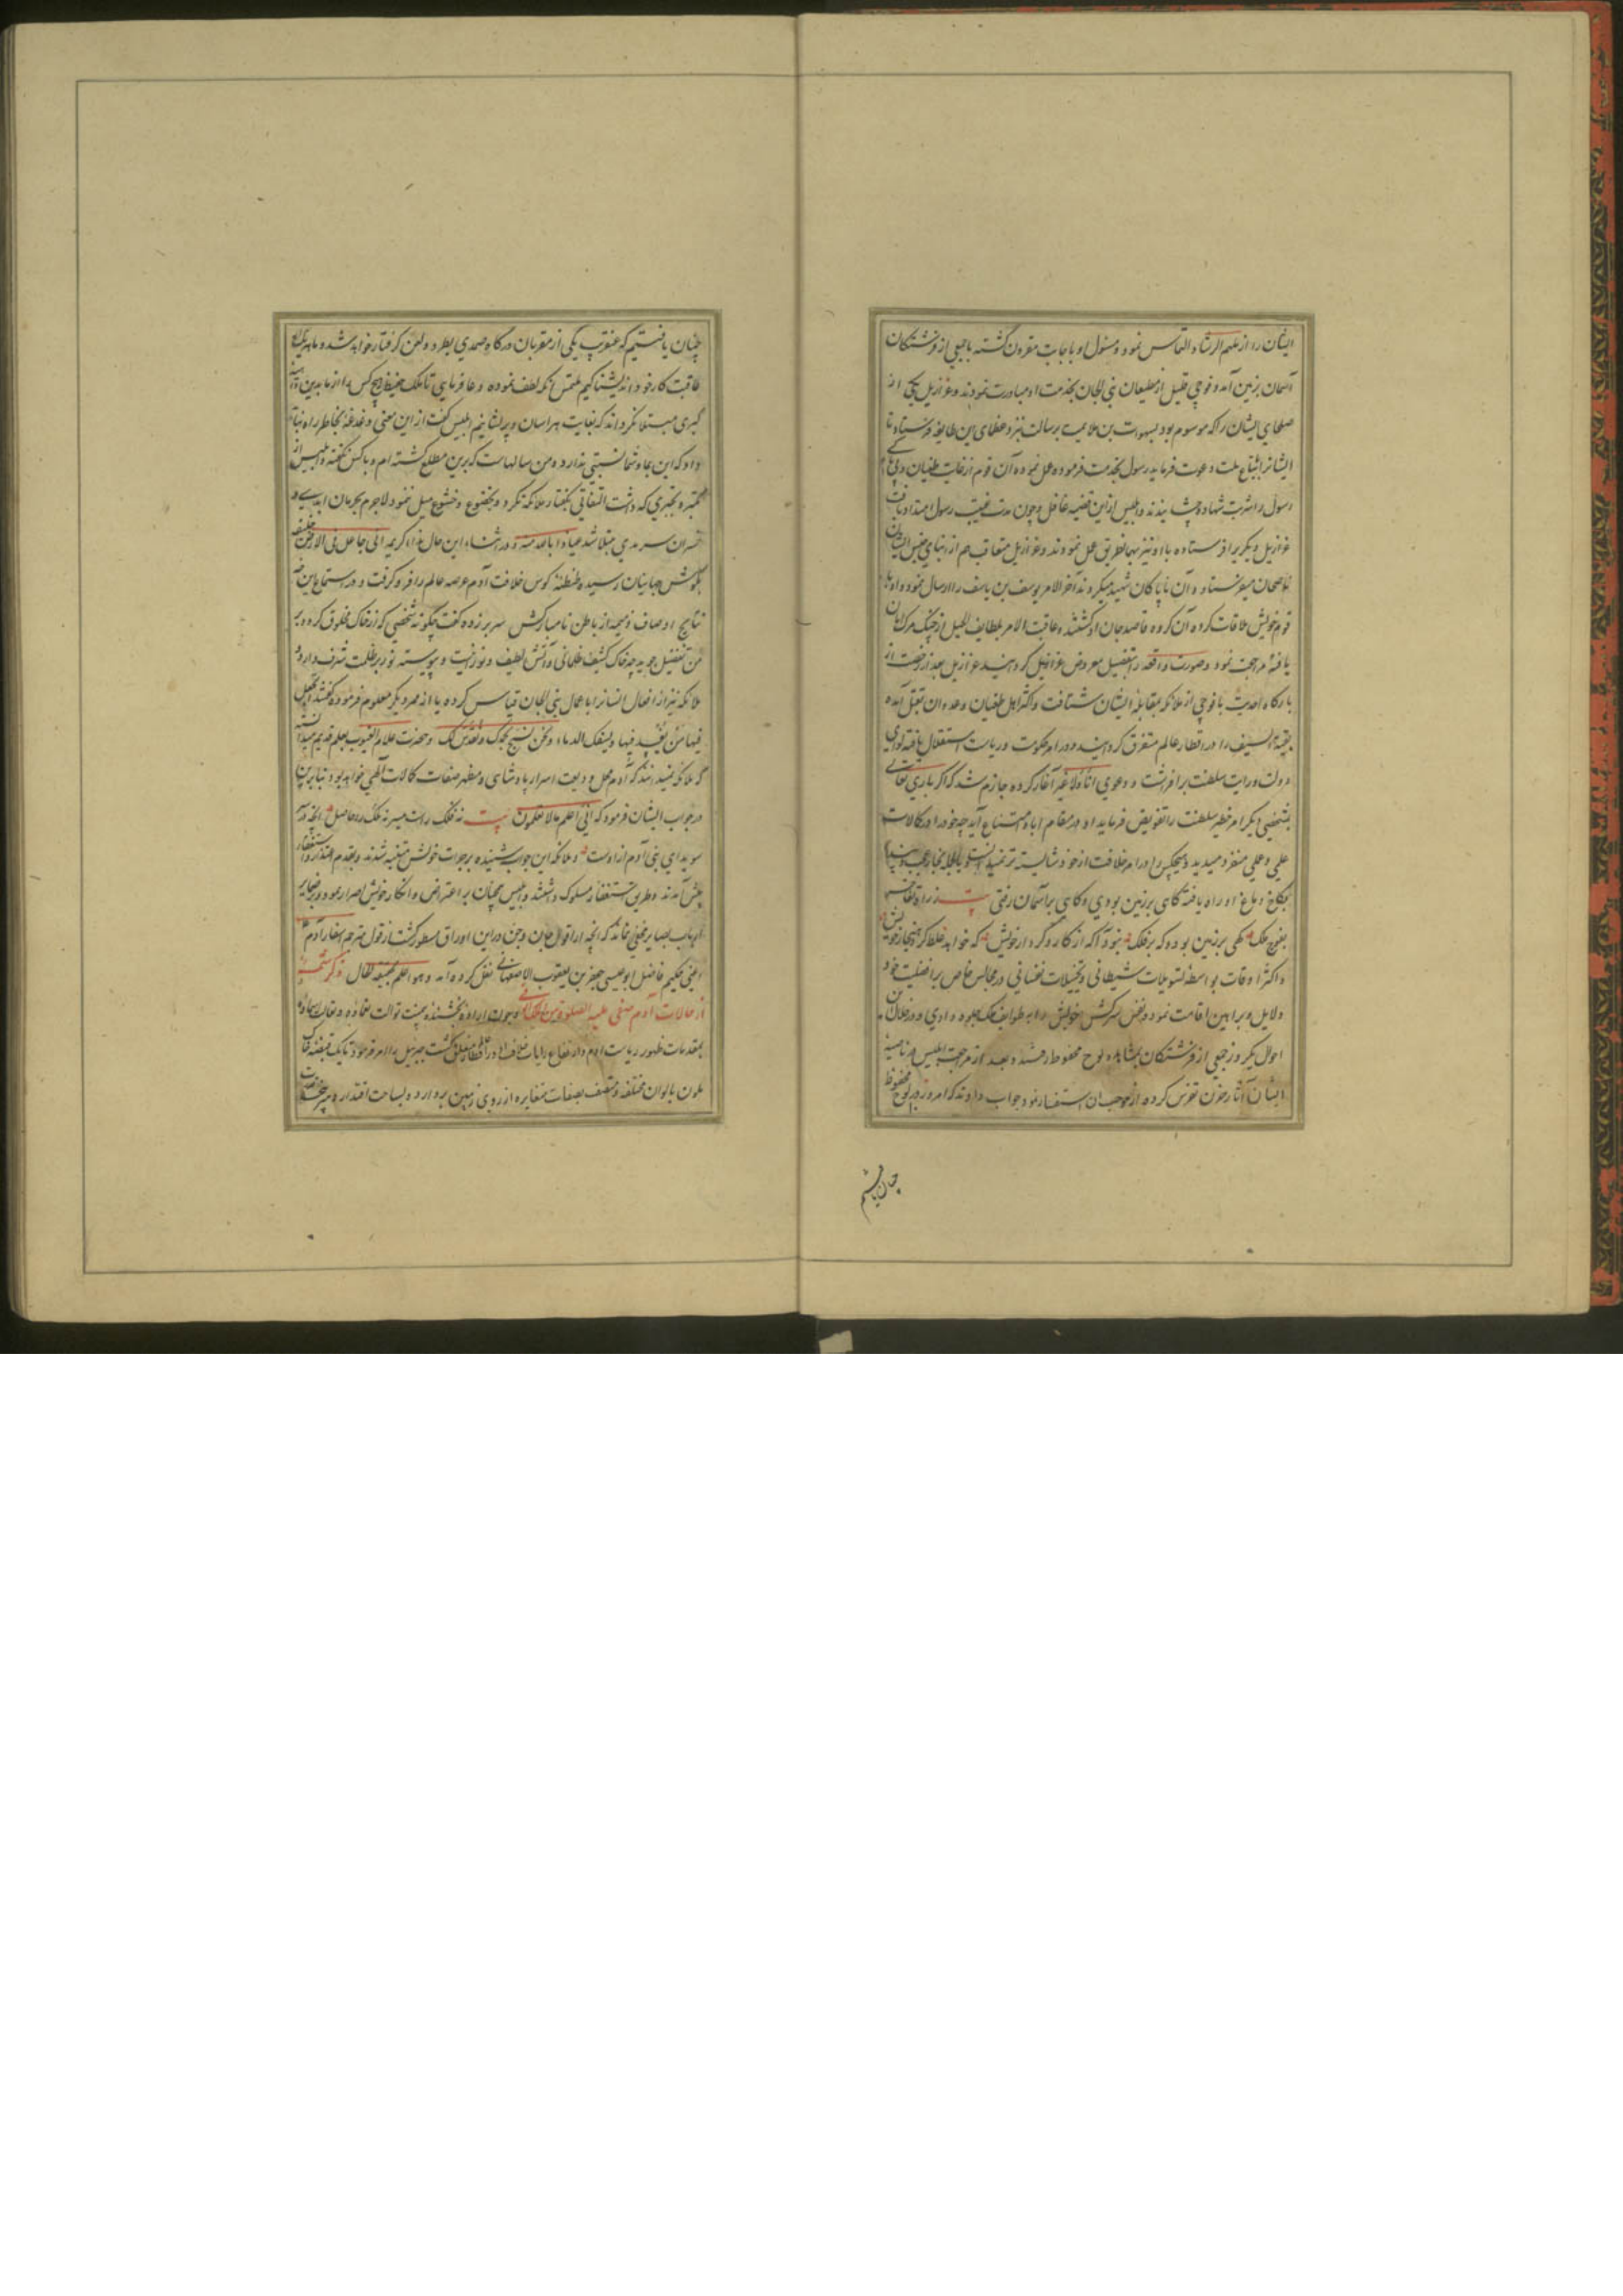 ایشان را از ملهم الرشاد التماس نمود و مسئول او باجابت مقرون گشته با جمعی از فرشتگان
آسمان بزمین آمد و فوجی قلیل از مطیعان بنی الجان بخدمت او مبادرت نمودند و عزازیل یکی از
صلحای ایشان را که موسوم بود بسهوات بن ملاعب برسالت نزد عظمای این طایفه فرستاد تا
ایشانرا باتباع ملت دعوت فرماید رسول بخدمت فرموده عمل نموده آن قوم از غایت طغیان
رسول را شربت شهادت چشانیدند و ابلیس ازین قضیه غافل و چون مدت غیبت رسول امتداد یافت
عزازیل دیگریرا فرستاده با او نیز بهمان طریق عمل نمودند و عزازیل متعاقب هم از ابنای جنس ایشان
ناصحان میفرستاد و آن ناپاکان شهید میکردند آخر الامر یوسف بن یاسف را ارسال نمود و او با
قوم خویش ملاقات کرده آن گروه قاصد جان او گشتند و عاقبت الامر بلطایف الحیل از چنگ مرگ امان
یافته مراجعت نمود و صورت واقعه را بتفصیل معروض عزازیل گردانید عزازیل بعد از رخصت از
بارگاه احدیت با فوجی از ملائکه بمقابله ایشان شتافت و اکثر اهل طغیان و عدوان بقتل آمده
بقیة السیف را در اقطار عالم متفرق گردانید و در امر حکومت و ریاست استقلال یافته لوای
دولت و رایت سلطنت برافراشت و دعوی انا و لا غیر آغاز کرده جازم شد که اگر باری تعالی
بشخصی دیگر امر خطیر سلطنت را تفویض فرماید او در مقام ابا و امتناع آید چه خود را در کمالات
علمی و عملی منفرد میدید و هیچکس را در امر خلافت از خود شایسته تر نمیدانست و بالجمله بخار عجب و پندار
بکاخ دماغ او راه یافته گاهی بر زمین بودی و گاهی بر آسمان رفتی بیت
بفوج ملک گهی بر زمین بود و گه بر فلک نبود آگه از کار و کردار خویش که خواهد غلط کرد هنجار خویش
و اکثر اوقات بواسطه تسویلات شیطانی و تخییلات نفسانی در مجالس خاص بر افضلیت خود
دلایل و براهین اقامت نمود و نفس سرکش خویش را به طواف ملک جلوه دادی و در خلال آن
احوال یک روز جمعی از فرشتگان بمشاهده لوح محفوظ رفتند و بعد از مراجعت ابلیس در ناصیه
ایشان آثار حزن تفرس کرده از موجب آن استفسار نمود جواب دادند که امروز در لوح محفوظ
چنان یافتیم
چنان یافتیم که عنقریب یکی از مقربان درگاه صمدی بطرد و لعن گرفتار خواهد شد و ما بر
عاقبت کار خود اندیشناکیم ملتمس آنکه لطف نموده دعا فرمایی تا ملک حفیظ هیچ کس را از ما بدین داهیه
کبری مبتلا نگرداند که بغایت هراسان و پریشانیم ابلیس گفت از این معنی دغدغه بخاطر راه نباید
داد که این بما و شما نسبتی ندارد و من سالهاست که برین مطلع گشته ام و با کس نگفته و ابلیس از
تکبر و تجبری که داشت التفاتی بگفتار ملائکه نکرد و بخضوع و خشوع میل ننمود لاجرم بحرمان ابدی و
خسران سرمدی مبتلا شد عیاذا بالله منه و در اثناء این حال نداء کریمه انی جاعل فی الارض خلیفه
بگوش جهانیان رسیده طنطنه کوس خلافت آدم عرصه عالم را فرو گرفت و در استماع این خبر
نتایج اوصاف ذمیمه از باطن نامبارکش سر بر زده گفت چگونه شخصی که از خاک مخلوق کرده بر
من تفضیل جوید چه خاک کثیف ظلمانی و آتش لطیف و نورانیست و پیوسته نور بر ظلمت شرف دارد و
ملائکه نیز از افعال انسانرا باعمال بنی الجان قیاس کرده یا از ممر دیگر معلوم فرموده گفتند اتجعل
فیها من یفسد فیها و یسفک الدماء و نحن نسبح بحمدک و نقدس لک و حضرت علام الغیوب بعلم قدیم میدانست
که ملائکه نمیدانند که آدم محل ودیعت اسرار پادشاهی و مظهر صفات کمالات الهی خواهد بود بنابرین
در جواب ایشان فرمود که انی اعلم ما لا تعلمون بیت نه فلک راست میسر نه ملک را حاصل آنچه در سر
سویدای بنی آدم از اوست و ملائکه این جواب شنیده بر جرات خویش متنبه شدند و بقدم اعتذار و استغفار
پیش آمدند و طریق استغفار مسلوک داشتند و ابلیس همچنان بر اعتراض و انکار خویش اصرار نمود و بر ضمایر
ارباب بصایر مخفی نماند که آنچه از اقوال جان و جن در این اوراق مسطور گشت از قول مترجم اسفار آدم
اعنی حکیم فاضل ابو عیسی جعفر بن یعقوب الاصفهانی نقل کرده آمد و هو اعلم بحقیقة الحال ذکر شمه
از حالات آدم صفی علیه الصلوة من الملک و چون اراده بخشنده بی منت توالت نعماؤه و تعالت اسماؤه
بمقدمات ظهور ریاست آدم و ارتفاع رایات خلافت او در اقطار متعلق گشت جبرئیل را امر فرمود تا یک قبضه خاک
ملون بالوان مختلفه و متصف بصفات متغایره از روی زمین بردارد و بساحت اقتدار